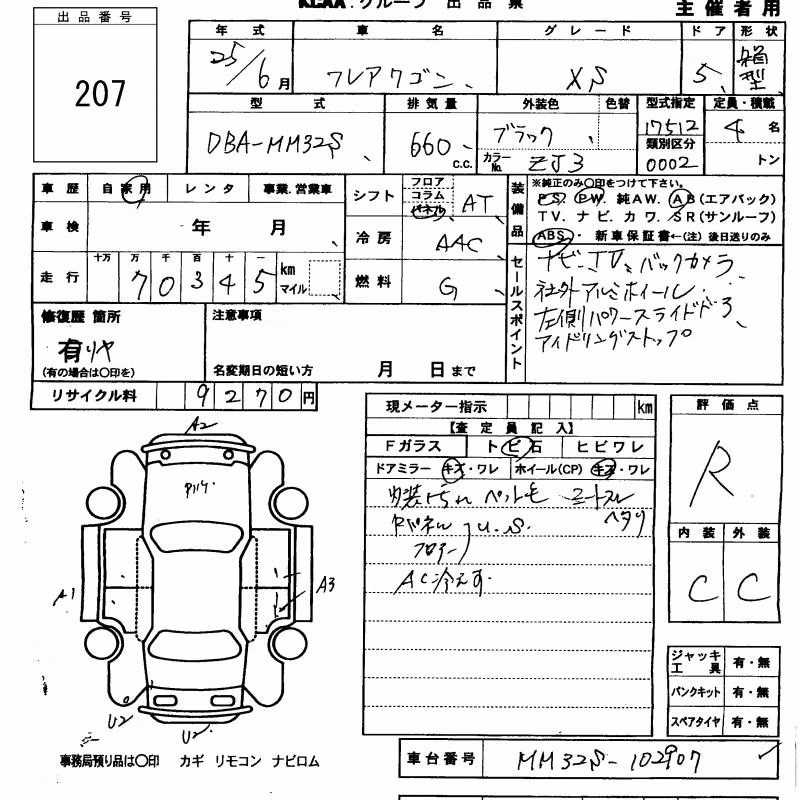 KCAA.グループ 出品票
主催者用
出品番号
207
年式 車名 グレード ドア 形状
25/6月 フレアワゴン XS 5 箱型
型式 排気量 外装色 色替 型式指定 定員・積載
DBA-MM32S 660 c.c. ブラック 17512 4名
カラーNo. ZJ3 類別区分 0002 トン
車歴 自家用 レンタ 事業.営業車
車検 年 月
走行 十万 万 千 百 十 一
70345 km マイル
シフト フロア コラム パネル AT
冷房 AAC
燃料 G
装備品
※純正のみ〇印をつけて下さい。
P S. P W. 純AW. A B(エアバック)
T V. ナ ビ. カ ワ. S R(サンルーフ)
ABS・ 新車保証書←(注) 後日送りのみ
セールスポイント
ナビ・TV、バックカメラ
社外アルミホイール
左側パワースライドドア
アイドリングストップ
修復歴 箇所
有リヤ
(有の場合は〇印を)
注意事項
名変期日の短い方 月 日まで
リサイクル料 9270円
現メーター指示 km
【査定員記入】
Fガラス トビ石 ヒビワレ
ドアミラー キズ・ワレ ホイール(CP) キズ・ワレ
内装 ペット毛
ヘタリ
パネル U.S
フロアー
AC冷えず
評価点
R
内装 外装
C C
ジャッキ工具 有・無
パンクキット 有・無
スペアタイヤ 有・無
A2
A1
A3
U2
U2
事務局預り品は〇印 カギ リモコン ナビロム
車台番号 MM32S-102907